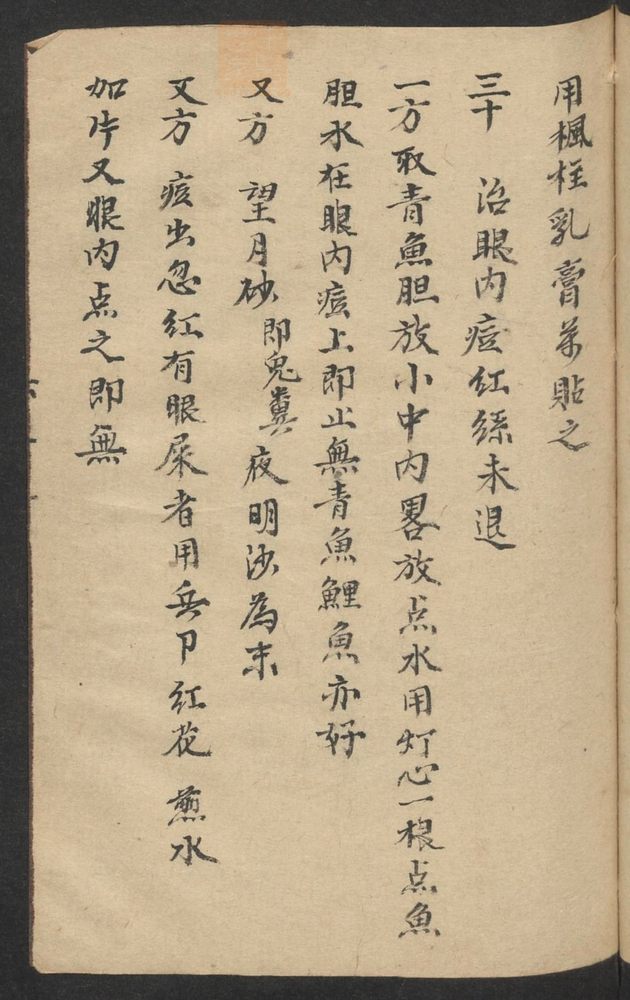 用楓柱乳膏药貼之
三十 治眼内痘红絲未退
一方取青魚胆放小中内畧放点水用灯心一根点魚
胆水在眼内痘上即止無青魚鯉魚亦好
又方 望月砂即兎糞夜明沙為末
又方 痘出忽红有眼屎者用兵卩红花 煎水
加片又眼内点之即無